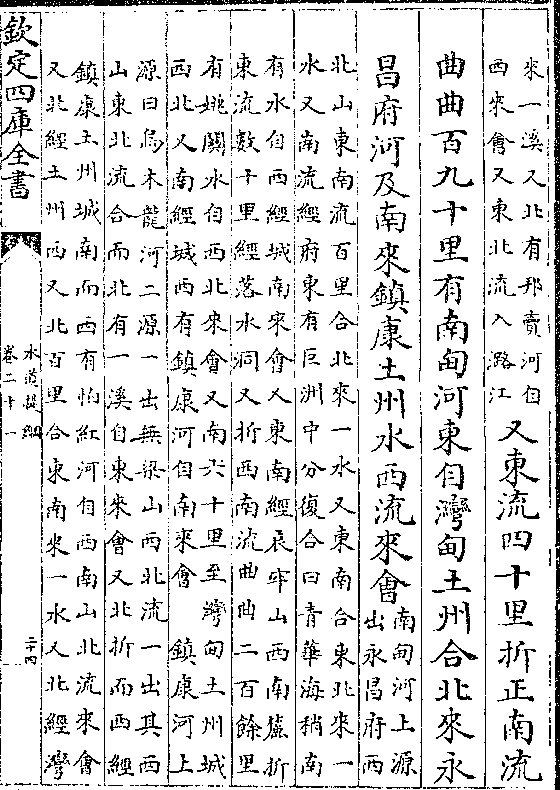 來一溪又北有邦賣河自
西來會又東北流入潞江
又東流四十里折正南流
曲曲百九十里有南甸河東自灣甸土州合北來永
昌府河及南來鎮康土州水西流來會
南甸河上源
出永昌府西
北山東南流百里合北來一水又東南合東北來一
水又南流經府東有巨洲中分復合曰青華海稍南
有水自西經城南來會又東南經哀牢山西南麓折
東流數十里經落水洞又折西南流曲曲二百餘里
有姚關水自西北來會又南六十里至灣甸土州城
西北又南經城西有鎮康河自南來會 鎮康河上
源曰烏木龍河二源一出無梁山西北流一出其西
山東北流合而北有一溪自東來會又北折而西經
鎮康土州城南而西有怕紅河自西南山北流來會
又北經土州西又北百里合東南來一水又北經灣
欽定四庫全書
水道提綱
卷二十一
二十四